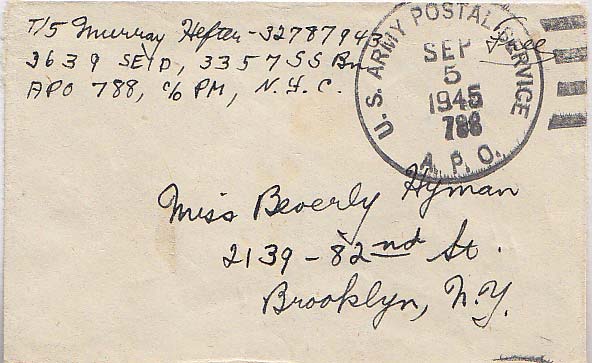 T/5 Murray Hefter - 32787943
3639 SEID, 3357 SS Bn
APO 788, c/o PM, N.Y.C.
Free
U.S. ARMY POSTAL SERVICE
SEP
5
1945
788
A.P.O.
Miss Beverly Hyman
2139 - 82nd St.
Brooklyn, N.Y.